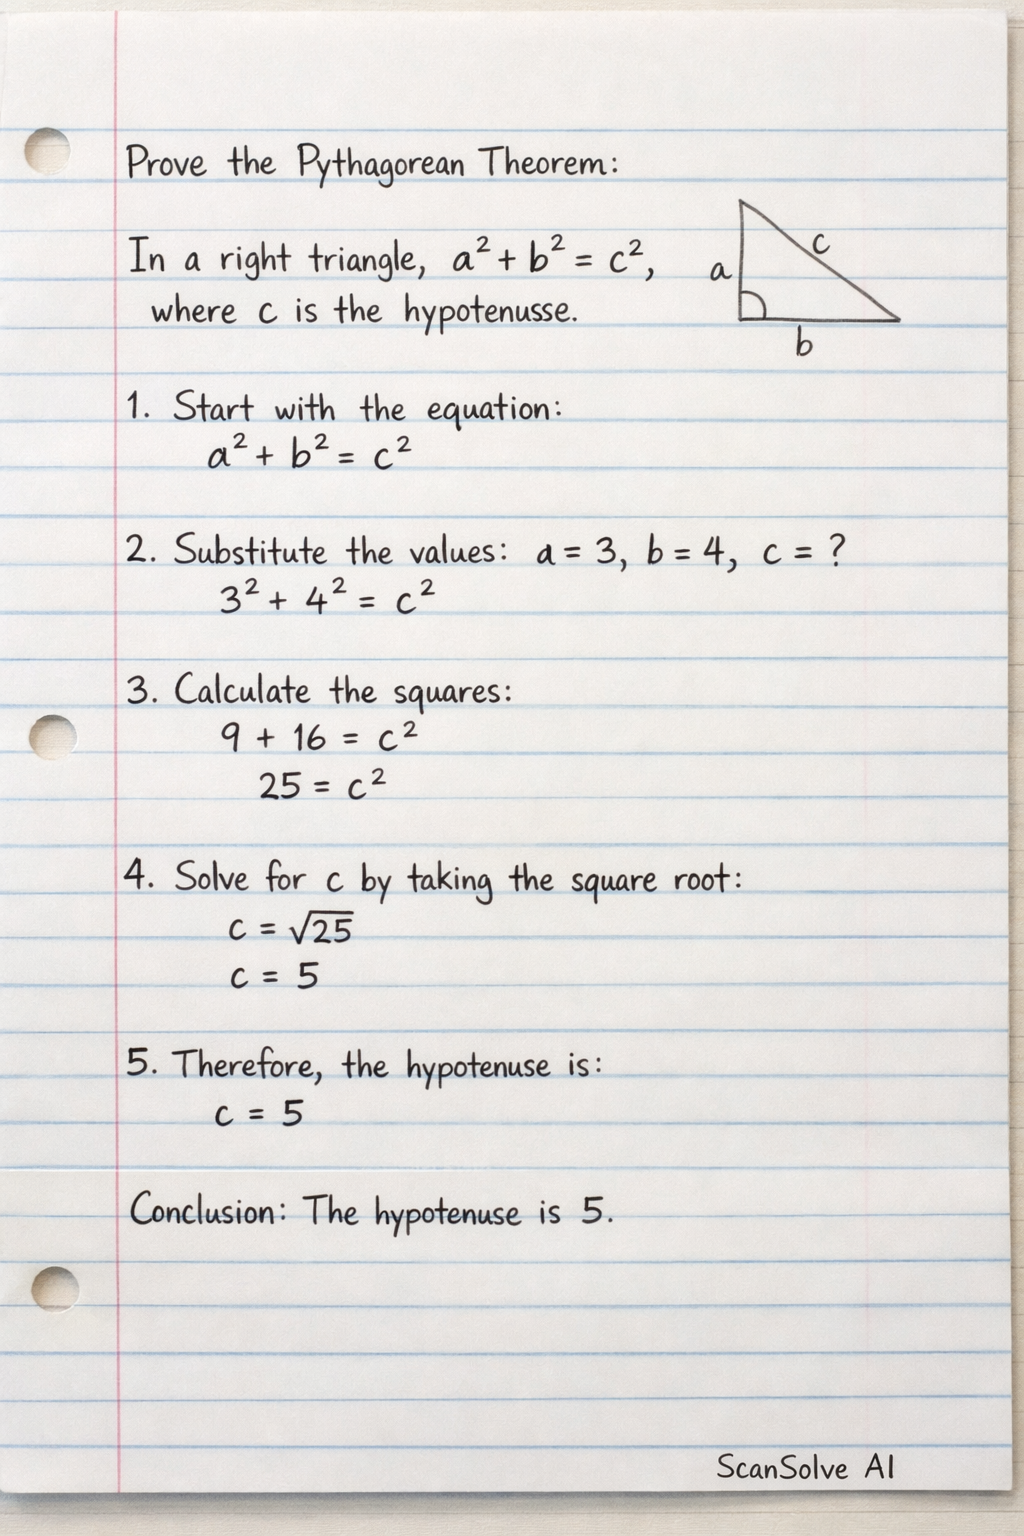 Prove the Pythagorean Theorem:
In a right triangle, a² + b² = c²,
where c is the hypotenusse.
a
c
b
1. Start with the equation:
a² + b² = c²
2. Substitute the values: a = 3, b = 4, c = ?
3² + 4² = c²
3. Calculate the squares:
9 + 16 = c²
25 = c²
4. Solve for c by taking the square root:
c = √25
c = 5
5. Therefore, the hypotenuse is:
c = 5
Conclusion: The hypotenuse is 5.
ScanSolve AI